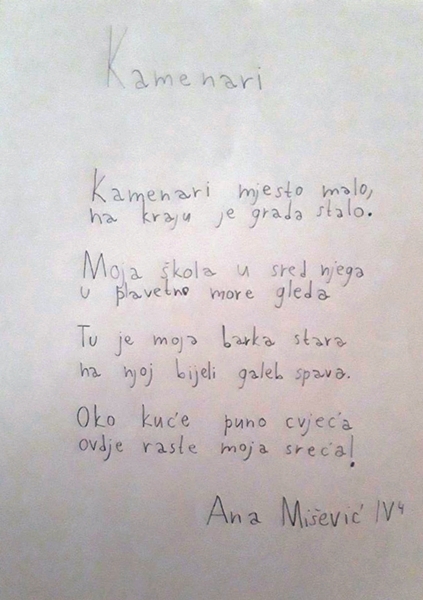 Kamenari
Kamenari mjesto malo,
na kraju je grada stalo.
Moja škola u sred njega
u plavetno more gleda
Tu je moja barka stara
na njoj bijeli galeb spava.
Oko kuće puno cvjeća
ovdje raste moja sreća!
Ana Mišević IV⁴